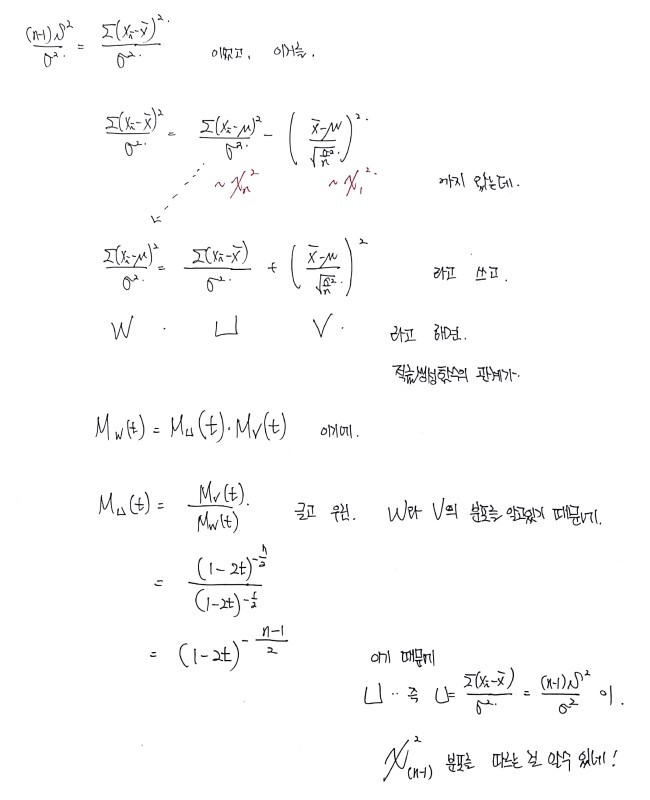 (n-1)S²/σ² = Σ(xᵢ-x̄)²/σ² 이었고, 이거는.
Σ(xᵢ-x̄)²/σ² = Σ(xᵢ-μ)²/σ² - ((x̄-μ)/√(σ²/n))²
~χₙ² ~χ₁² 까지 왔는데.
Σ(xᵢ-μ)²/σ² = Σ(xᵢ-x̄)/σ² + ((x̄-μ)/√(σ²/n))² 라고 쓰고.
W . U V . 라고 하면.
적률생성함수의 관계가.
M_W(t) = M_U(t)·M_V(t) 이기에.
M_U(t) = M_V(t)/M_W(t) 글고 우린. W와 V의 분포를 알고있기 때문에.
= (1-2t)^(-n/2)/(1-2t)^(-1/2)
= (1-2t)^(-(n-1)/2)
이기 때문에
U .. 즉 U = Σ(xᵢ-x̄)/σ² = (n-1)S²/σ² 이.
χ²₍ₙ₋₁₎ 분포를 따르는 걸 알수 있네!